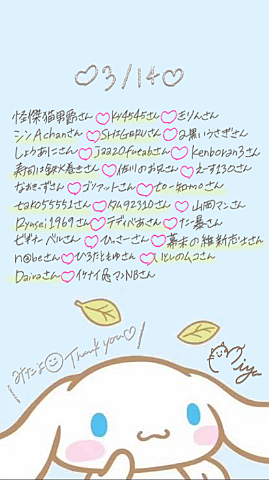 ♡3/14♡
怪傑猫男爵さん♡Ky4545さん♡きりんさん
シンAchanさん♡SHIGERUさん♡2黒いうさぎさん
しょうあにさん♡jazz0futabさん♡Kenboran3さん
寿司は鉄火巻きさん♡佐川のお兄さん♡えーす130さん
なおきーずさん♡ゴリアットさん♡to-komoさん
tako55551さん♡KJA92310さん♡山岡マンさん
Ryusei1969さん♡テディべあさん♡たー暴さん
ゼザオーベルさん♡ひっさーさん♡幕末の維新志士さん
n@beさん♡ひろたともゆさん♡いとしのムコさん
Dairaさん♡イケナイ マンNBさん
みたよ Thank you♡